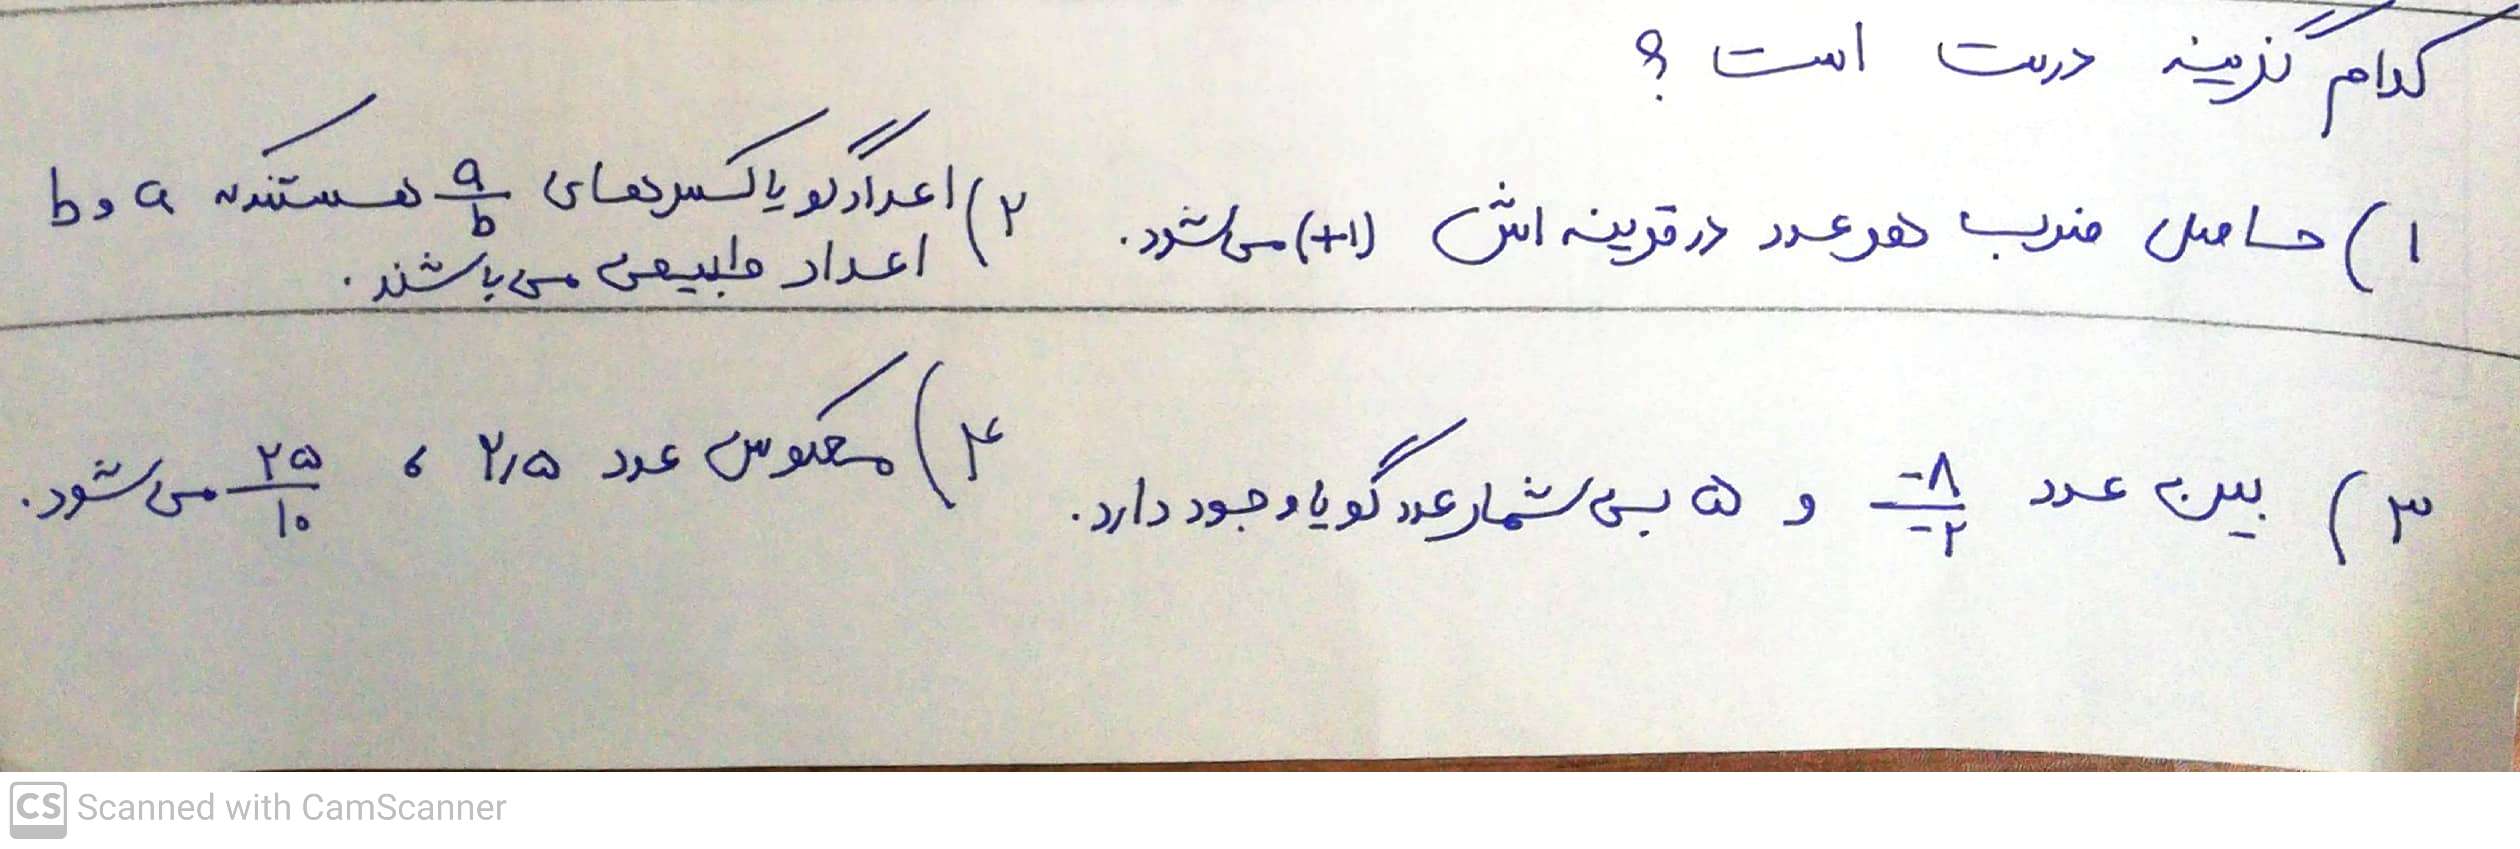 کدام گزینه درست است ؟
۱) حاصل ضرب هر عدد در قرینه اش (+۱) می‌شود.
۲) اعداد گویا کسرهای a/b هستند که a و b
اعداد طبیعی می باشند.
۳) بین عدد -۸/-۲ و ۵ بی شمار عدد گویا وجود دارد.
۴) معکوس عدد ۲٫۵ ، ۲۵/۱۰ می‌شود.
CS Scanned with CamScanner